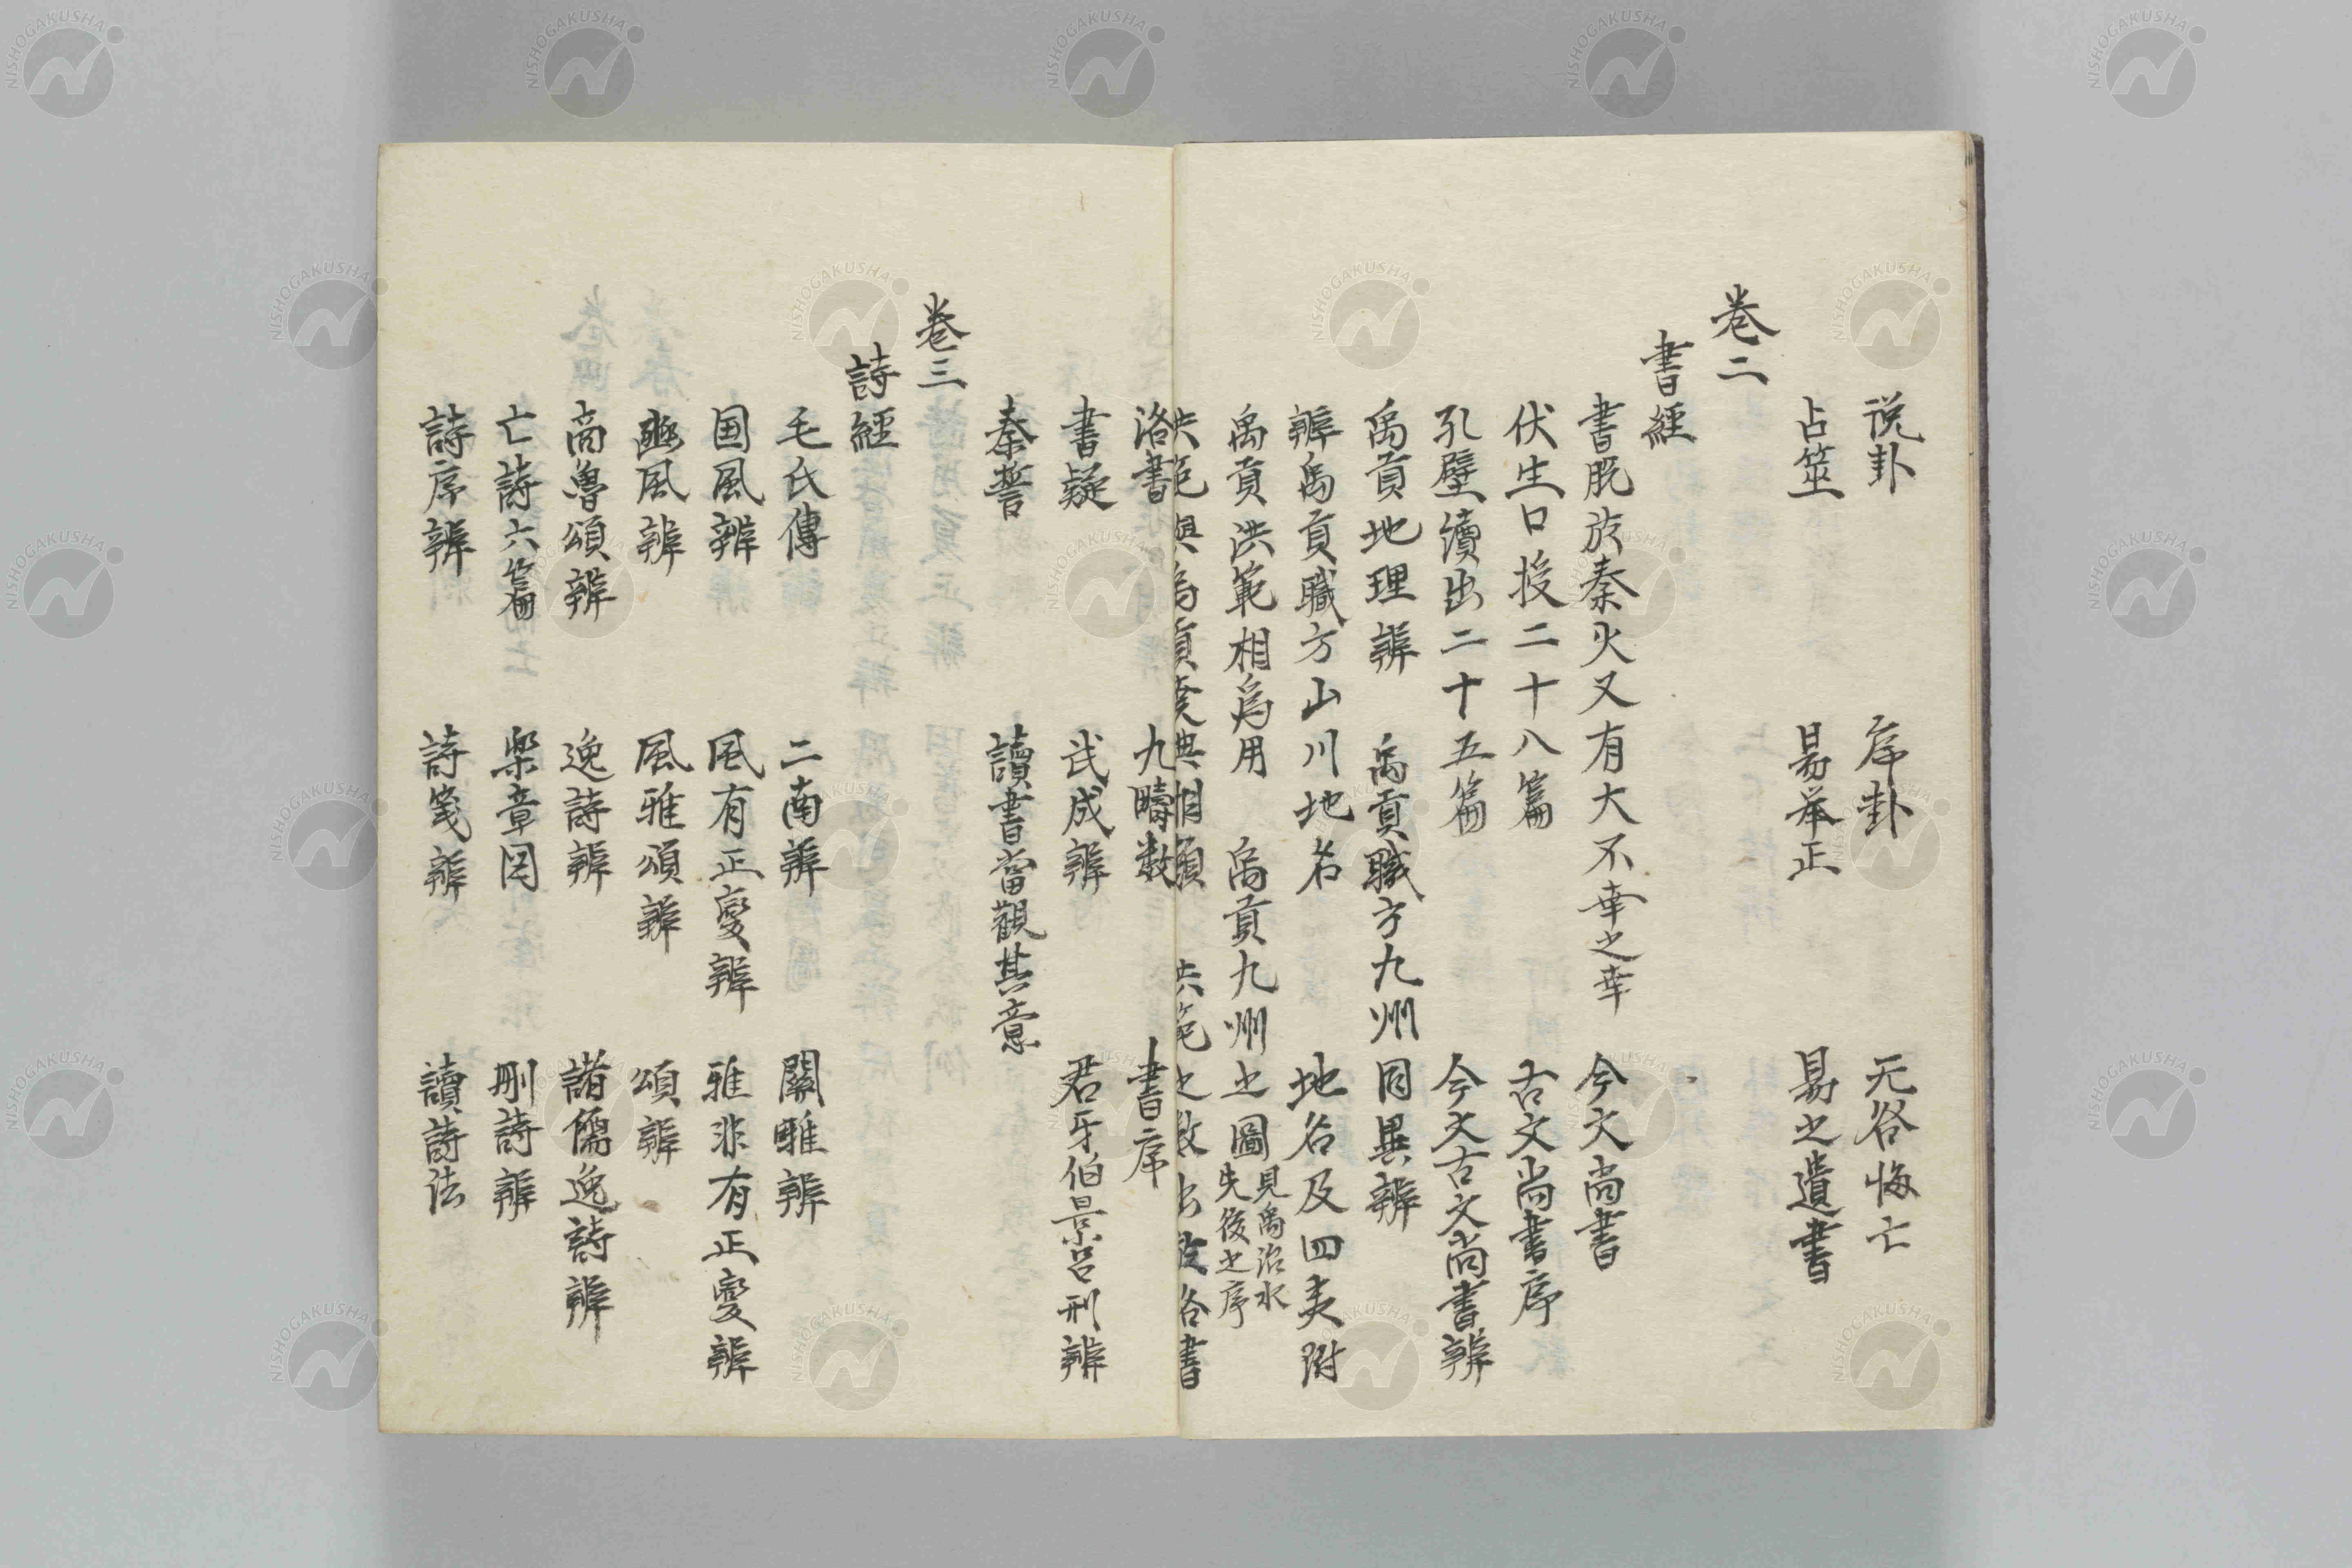 説卦　序卦　无咎悔亡
占筮　易举正　易之遺書
卷二
書經
書脱於秦火又有大不幸之幸　今文尚書
伏生口授二十八篇　古文尚書序
孔壁續出二十五篇　今文古文尚書辨
禹貢地理辨　禹貢職方九州同異辨
辨禹貢職方山川地名　地名及四夷附
禹貢洪範相爲用　禹貢九州之圖 見禹治水 失後之序
洪範與禹貢　相類　洪範之數　洛書
洛書　九疇数　書序
書疑　武成辨　君牙伯景呂刑辨
秦誓　讀書當觀其意
卷三
詩經
毛氏傳　二南辨　關雎辨
国風辨　風有正變辨　雅非有正變辨
豳風辨　風雅頌辨　頌辨
商魯頌辨　逸詩辨　諸儒逸詩辨
亡詩六篇　樂章図　刪詩辨
詩序辨　詩箋辨　讀詩法
NISHOGAKUSHA